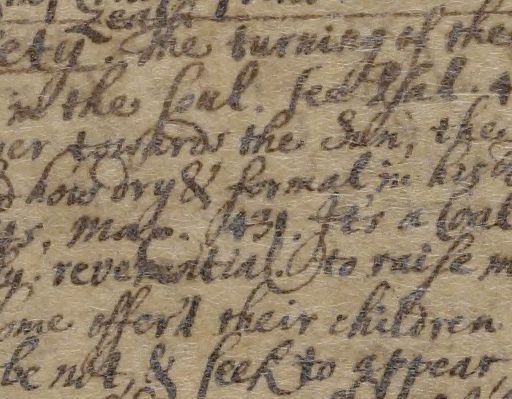 Zeash
ety. The turning of the
in the soul. see Psal. 4
er towards the Sun, the
how dry & formal in his
ts, Max. 143. It's a Coal
ly, reverential. to raise m
ome offer'd their children
be not, & seek to appear